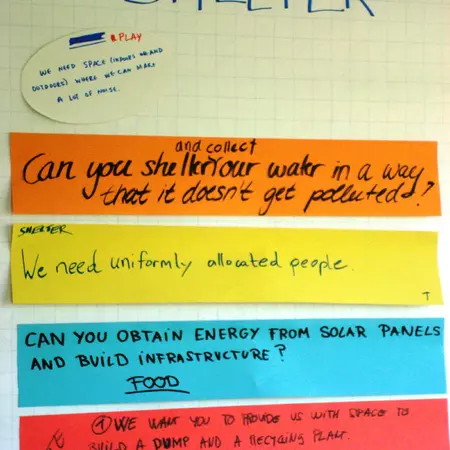 SHELTER
PLAY
WE NEED SPACE (INDOORS AND
OUTDOORS) WHERE WE CAN MAKE
A LOT OF NOISE.
and collect
Can you shelter your water in a way
that it doesn't get polluted?
SHELTER
We need uniformly allocated people.
T
CAN YOU OBTAIN ENERGY FROM SOLAR PANELS
AND BUILD INFRASTRUCTURE?
FOOD
1 WE WANT YOU TO PROVIDE US WITH SPACE TO
BUILD A DUMP AND A RECYCING PLANT.